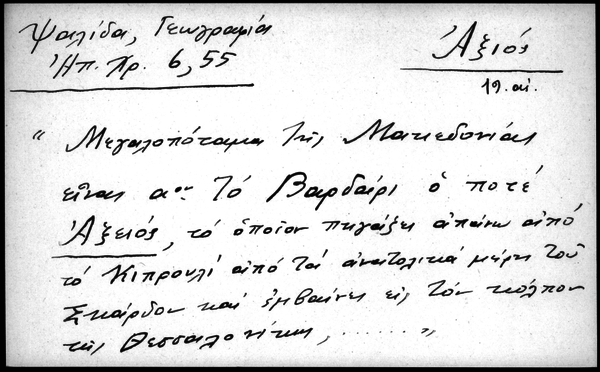 Ψαλίδα, Γεωγραφία
Ἠπ. Χρ. 6, 55
Ἀξιός
19. αἰ.
" Μεγαλοπόταμα τῆς Μακεδονίας
εἶναι αον. τό Βαρδάρι ὁ ποτέ
Ἀξειός, τό ὁποῖον πηγάζει ἀπάνω ἀπό
τό Κιπρουλί ἀπό τά ἀνατολικά μέρη τοῦ
Σκάρδου καί ἐμβαίνει εἰς τόν κόλπον
τῆς Θεσσαλονίκης, ....... "